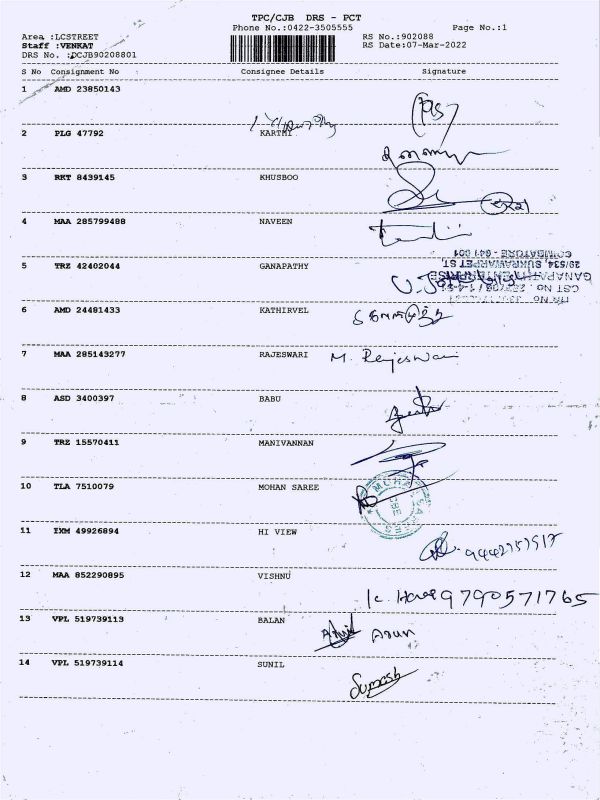 TPC/CJB DRS - PCT
Phone No.:0422-3505555
Page No.:1
Area :LCSTREET
RS No.:902088
Staff :VENKAT
RS Date:07-Mar-2022
DRS No. :DCJB90208801
S No Consignment No Consignee Details Signature
1 AMD 23850143
2 PLG 47792 KARTHI
3 RKT 8439145 KHUSBOO
4 MAA 285799488 NAVEEN
5 TRZ 42402044 GANAPATHY
GANAPATHY ENTERPRISE
29/534, SUKRAWARPET ST,
COIMBATORE - 641 001
6 AMD 24481433 KATHIRVEL
7 MAA 285143277 RAJESWARI M. Rajeswari
8 ASD 3400397 BABU
9 TRZ 15570411 MANIVANNAN
10 TLA 7510079 MOHAN SAREE
11 IXM 49926894 HI VIEW
12 MAA 852290895 VISHNU 9790571765
13 VPL 519739113 BALAN Arun
14 VPL 519739114 SUNIL Sumesh